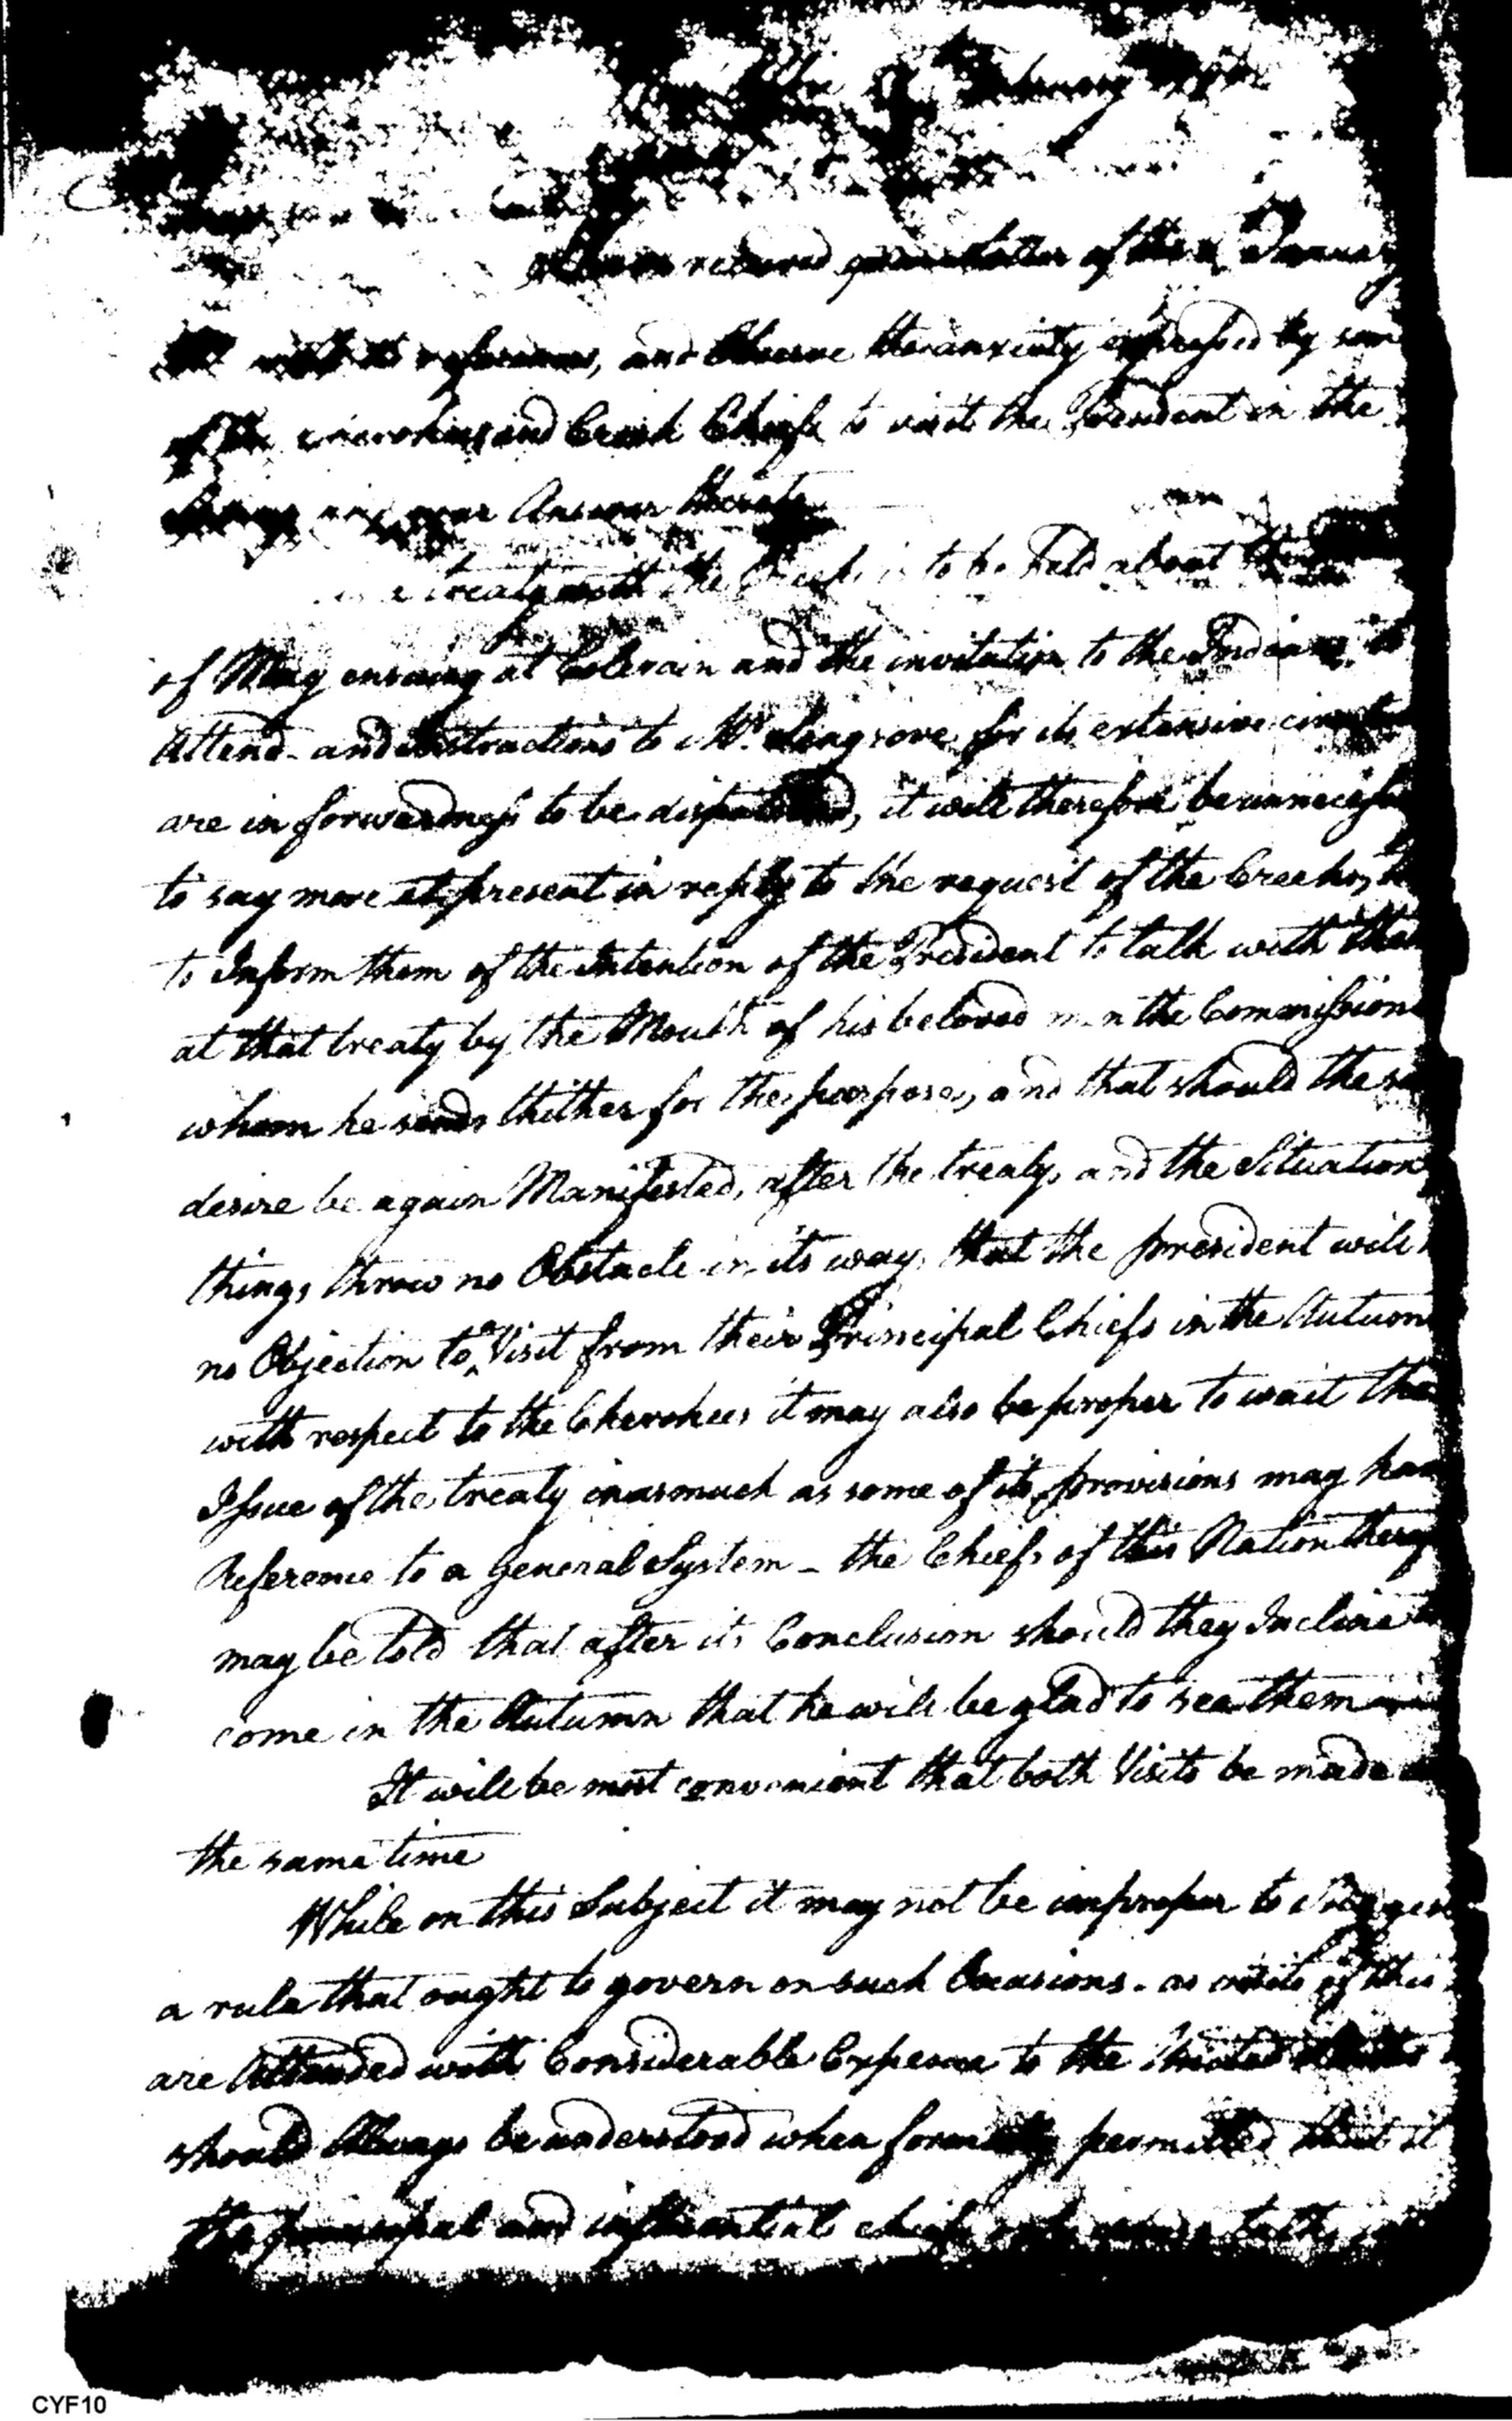 February
received letter of the January
and Observe the anxiety expressed by some
of the and Creek Chiefs to visit the President in the
your Answer thereto
a treaty with the Creeks is to be held about
of May ensuing at Colerain and the invitation to the Indians to
Attend and Instructions to Mr. Seagrove for its extensive
are in forwardness to be dispatched, it will therefore be unnecessa
to say more at present in reply to the request of the Creeks, th
to Inform them of the Intention of the President to talk with them
at that treaty by the Mouth of his beloved men the Commission
whom he sends thither for the purpose, and that should the sa
desire be again Manifested, after the treaty, and the Situation
things throw no Obstacle in its way, that the president will
no Objection to a Visit from their Principal Chiefs in the Autumn
with respect to the Cherokees it may also be proper to wait the
Issue of the treaty inasmuch as some of its provisions may have
Reference to a General System - the Chiefs of this Nation theref
may be told that after its Conclusion should they Incline to
come in the Autumn that he will be glad to see them
It will be most convenient that both Visits be made
the same time
While on this Subject it may not be improper to Suggest
a rule that ought to govern on such Occasions. as visits of this
are Attended with Considerable Expence to the United States
should Always be understood when formally permitted that it
the principal and influential chiefs
CYF10